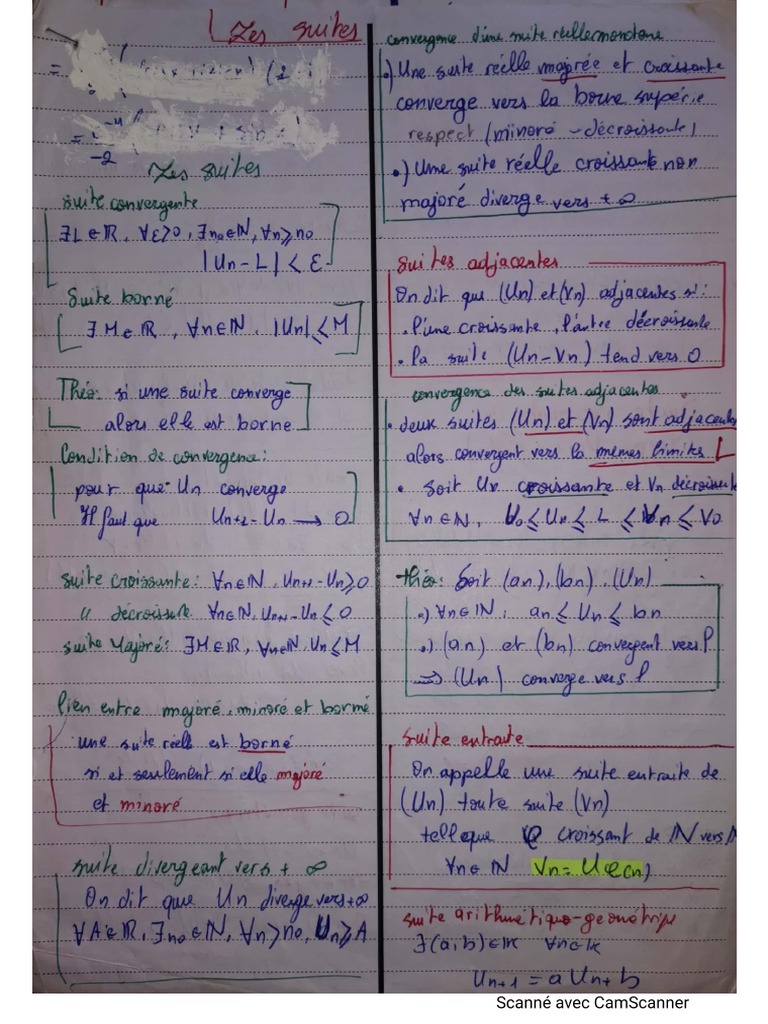 Les suites
Les suites
suite convergente
∃L∈ℝ, ∀ε>0, ∃n₀∈ℕ, ∀n≥n₀
|Un-L| < ε
Suite borné
∃M∈ℝ, ∀n∈ℕ, |Un|≤M
Théo: si une suite converge
alors elle est borne
Condition de convergence:
pour que Un converge
Il faut que Un+1-Un → 0
suite croissante: ∀n∈ℕ, Un+1-Un≥0
" décroissute ∀n∈ℕ, Un+1-Un≤0
suite Majoré: ∃M∈ℝ, ∀n∈ℕ, Un≤M
lien entre majoré, minoré et borné
une suite réelle est borné
si et seulement si elle majoré
et minoré
suite divergeant vers +∞
On dit que Un diverge vers +∞
∀A∈ℝ, ∃n₀∈ℕ, ∀n>n₀, Un≥A
convergence d'une suite réelle monotone
•) Une suite réelle majorée et croissante
converge vers la borne supérie
respect (minoré - décroissante)
•) Une suite réelle croissante non
majoré diverge vers +∞
Suites adjacentes
On dit que (Un) et (Vn) adjacentes si:
• l'une croissante, l'autre décroissante
• la suite (Un-Vn) tend vers 0
convergence des suites adjacentes
• deux suites (Un) et (Vn) sont adjacente
alors convergent vers la mêmes limites L
• soit Un croissante et Vn décroissante
∀n∈ℕ, U₀≤Un≤L≤Vn≤V₀
théo: Soit (an), (bn), (Un)
•) ∀n∈ℕ; an≤Un≤bn
•) (an) et (bn) convergent vers l
⇒ (Un) converge vers l
suite extraite
On appelle une suite extraite de
(Un) toute suite (Vn)
telle que φ croissant de ℕ vers ℕ
∀n∈ℕ Vn = Uφ(n)
suite arithmétique-geométrique
∃(a,b)∈𝕂 ∀n∈𝕂
Un+1 = a Un + b
Scanné avec CamScanner